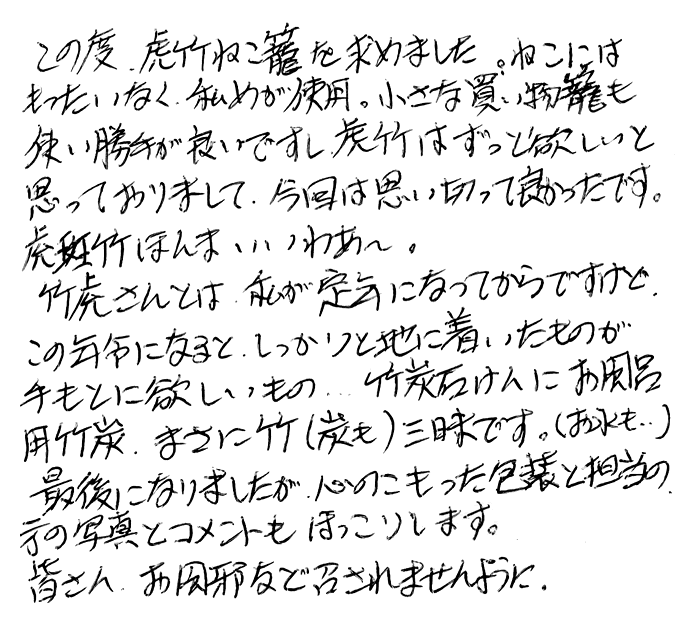 この度、虎竹ねこ籠を求めました。ねこには
もったいなく、私めが使用。小さな買い物籠も
使い勝手が良いですし、虎竹はずっと欲しいと
思っておりまして、今回は思い切って良かったです。
虎斑竹ほんまいいわあ〜。
竹虎さんとは、私が定年になってからですけど、
この年令になると、しっかりと地に着いたものが
手もとに欲しいもの… 竹炭石けんにお風呂
用竹炭、まさに竹(炭も)三昧です。(お水も…)
最後になりましたが、心のこもった包装と担当の
方の写真とコメントもほっこりします。
皆さん、お風邪など召されませんように。